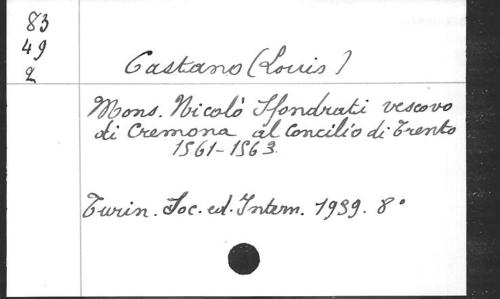 83
49
2
Castano (Louis)
Mons. Nicolò Sfondrati vescovo
di Cremona al Concilio di Trento
1561-1563.
Turin. Soc. ed. Intern. 1939. 8°